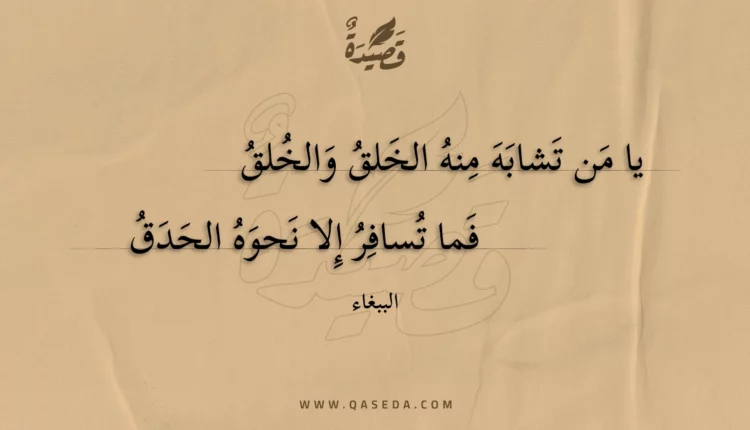 قَصِيدَةٌ
يا مَن تَشابَهَ مِنهُ الخَلقُ وَالخُلقُ
فَما تُسافِرُ إِلا نَحوَهُ الحَدَقُ
الببغاء
WWW.QASEDA.COM